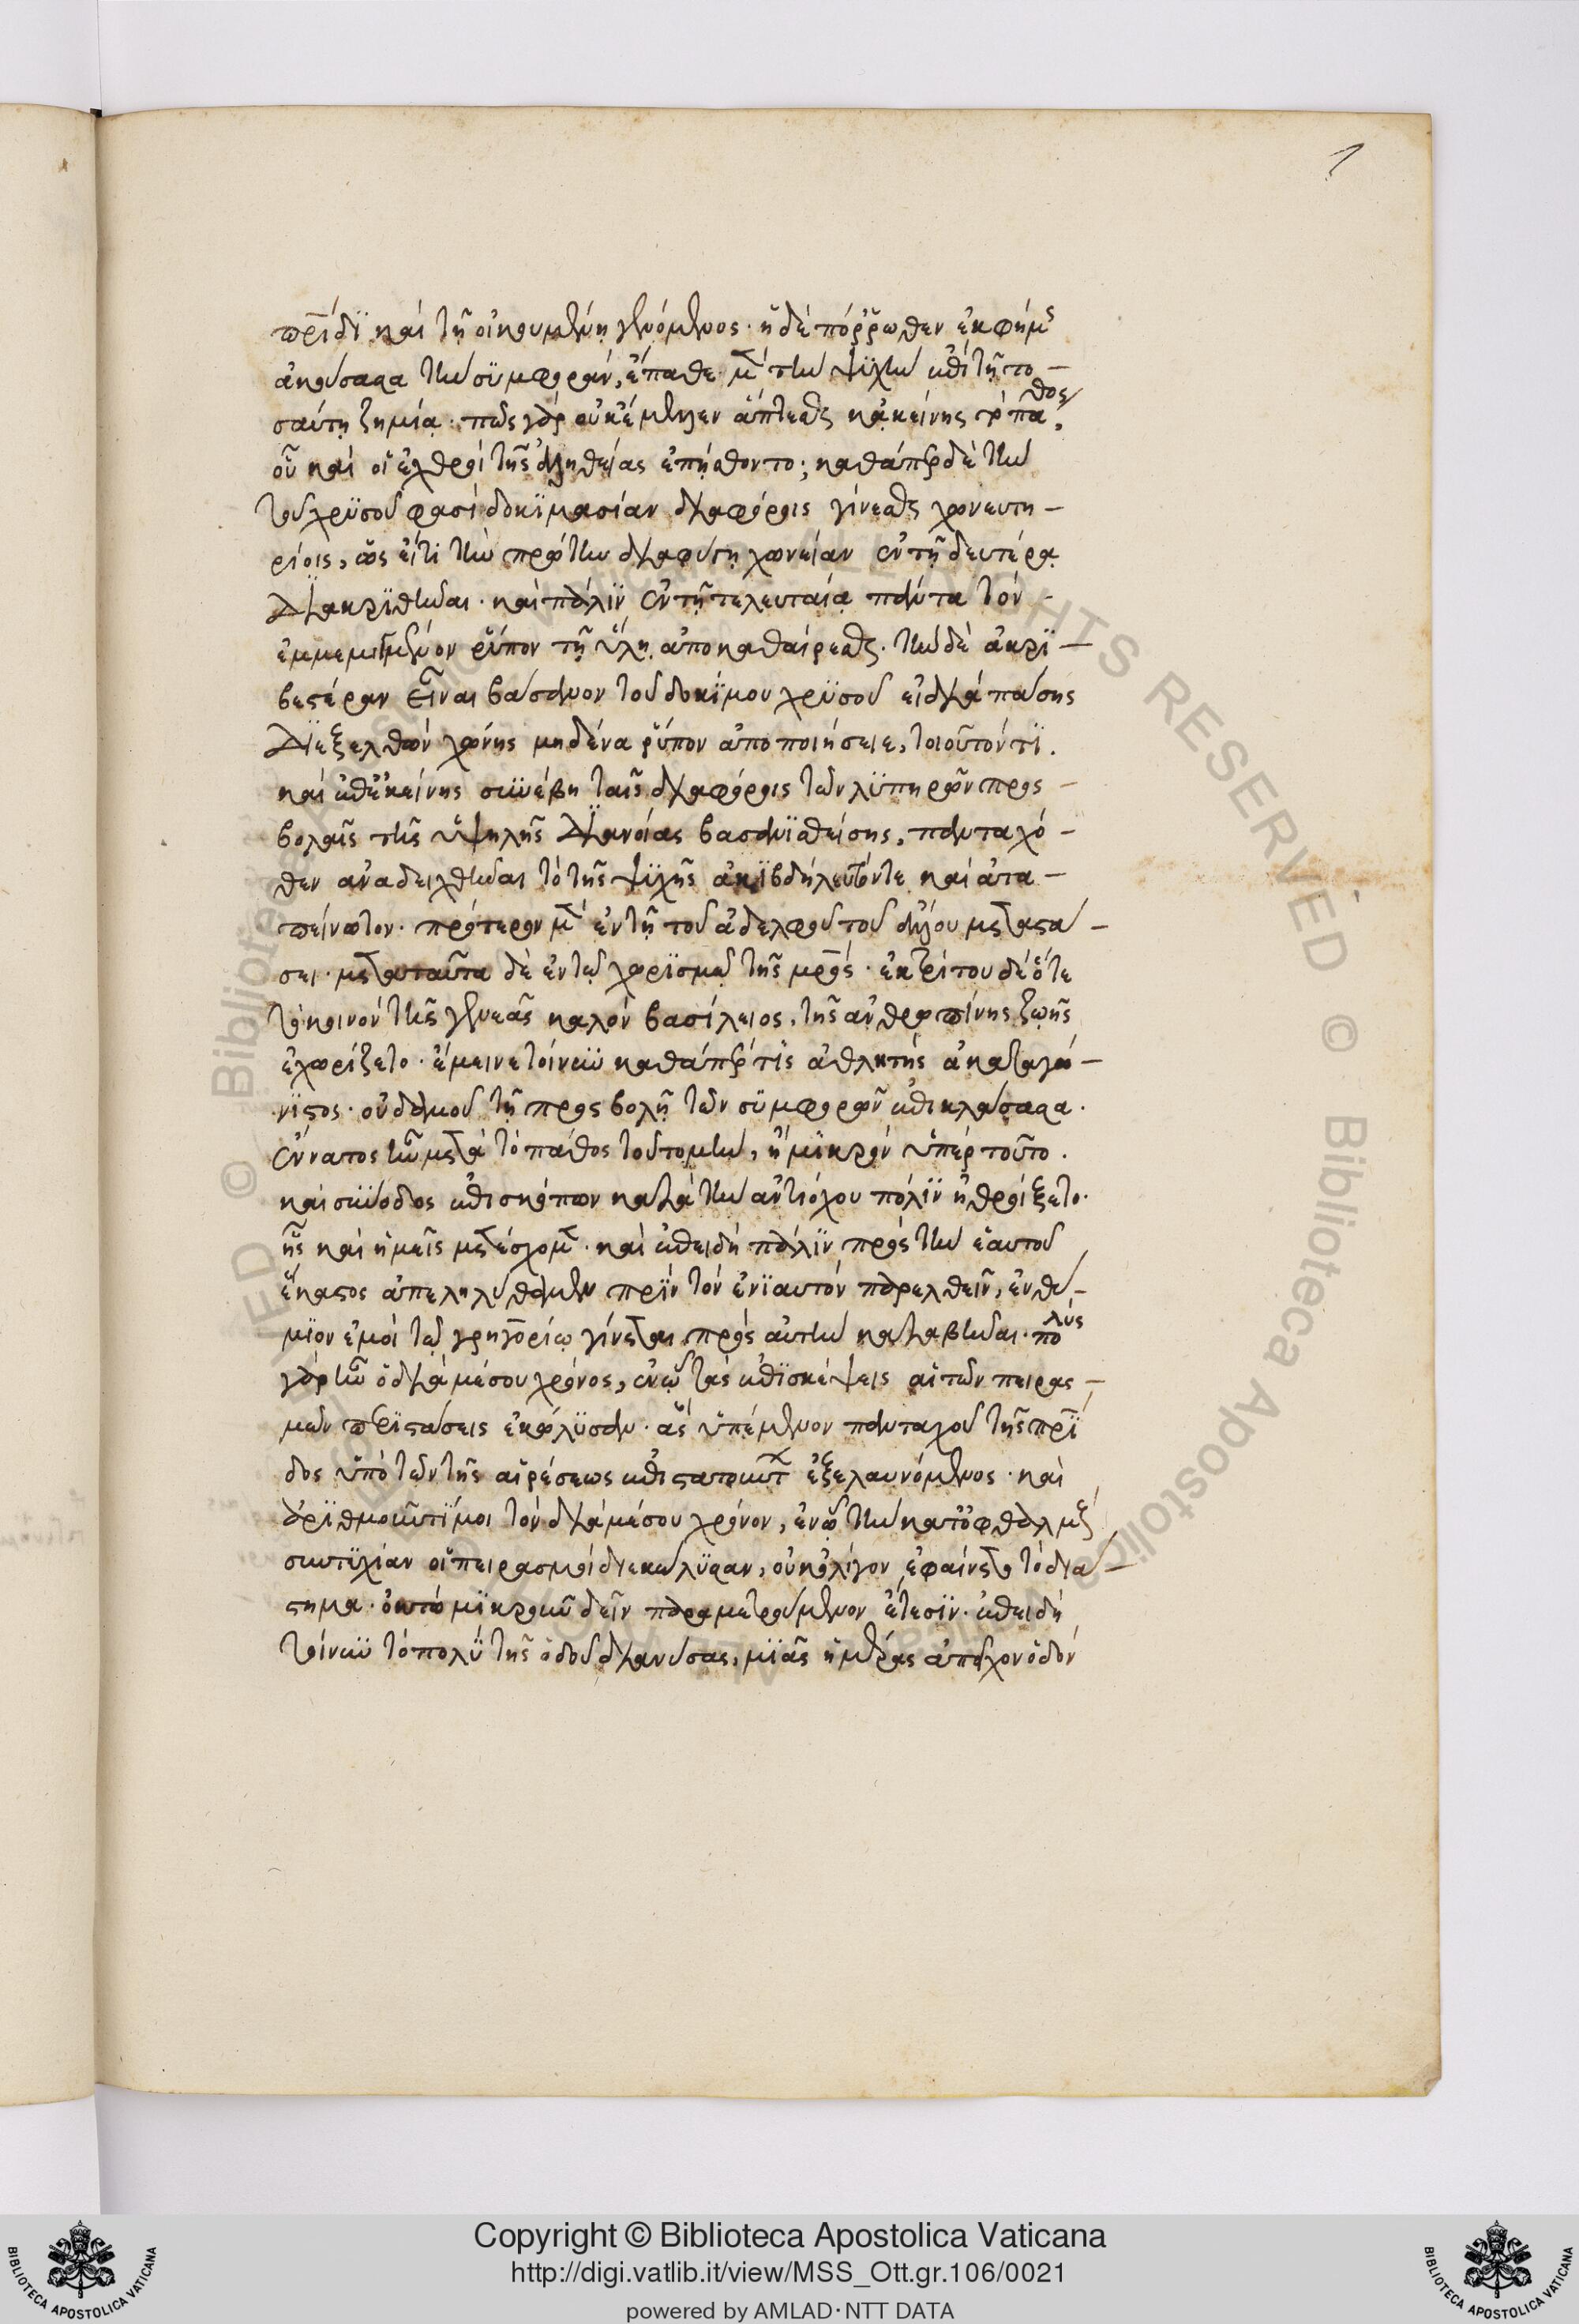 1
πρίδϊ καὶ τῇ οἰκουμένῃ γενόμενος· ἡ δὲ πόῤῥωθεν ἐκ φήμης
ἀκούσασα τὴν συμφορὰν, ἔπαθε μὲν τὴν ψϋχὴν ἐπὶ τῇ το-
σαύτῃ ζημίᾳ· πῶς γὰρ οὐκ ἔμελλεν ἅπτεσθαι κἀκείνης τὸ πάθος,
οὗ καὶ οἱ ἐχθροὶ τῆς ἀληθείας ἐπῄσθοντο; καθάπερ δὲ τὴν
τοῦ χρϋσοῦ φασὶ δοκϊμασίαν διαφόροις γίνεσθαι χονευτη-
ρίοις, ὡς εἴ τι τὴν πρώτην διαφύγῃ χωνείαν ἐν τῇ δευτέρᾳ
διακρϊθῆναι· καὶ πάλϊν ἐν τῇ τελευταίᾳ πάντα τὸν
ἐμμεμιγμένον ῥύπον τῇ ὕλῃ ἀποκαθαίρεσθαι· τὴν δὲ ἀκρϊ-
βεστέραν εἶναι βάσανον τοῦ δοκίμου χρϋσοῦ εἰ διὰ πάσης
διεξελθὼν χώνης μηδένα ῥύπον ἀποποιήσειε, τοιοῦτόν τϊ.
καὶ ἐπ' ἐκείνης συνέβη ταῖς διαφόροις τῶν λϋπηρῶν προς
βολαῖς τῆς ὑψηλῆς διανοίας βασανϊσθείσης, πανταχό-
θεν ἀναδειχθῆναι τὸ τῆς ψϋχῆς ἀκϊβδήλευτόν τε καὶ ἀτα-
πείνωτον· πρότερον μὲν ἐν τῇ τοῦ ἀδελφοῦ τοῦ ἁγίου μεταστά-
σει· μετὰ ταῦτα δὲ ἐν τῷ χωρϊσμῷ τῆς μητρός· ἐκ τρίτου δὲ ὅτε
τὸ κοινὸν τῆς γενεᾶς καλὸν βασίλειος, τῆς ἀνθρωπίνης ζωῆς
ἐχωρίζετο· ἔμεινε τοίνυν καθάπερ τὶς ἀθλητὴς ἀκαταγώ-
νϊστος· οὐδαμοῦ τῇ προςβολῇ τῶν συμφορῶν ἐπικλάσασα.
ἔννατος ἦν μετὰ τὸ πάθος τοῦτο μὴν, ἢ μϊκρὸν ὑπὲρ τοῦτο.
καὶ σύνοδος ἐπισκόπων κατὰ τὴν ἀντιόχου πόλϊν ἠθροίζετο·
ἧς καὶ ἡμεῖς μετέσχομεν· καὶ ἐπειδὴ πάλϊν πρὸς τὴν ἑαυτοῦ
ἕκαστος ἀπεληλύθαμεν πρὶν τὸν ἐνϊαυτὸν παρελθεῖν, ἐνθύ-
μϊον ἐμοὶ τῷ γρηγορίῳ γίνεται πρὸς αὐτὴν καταβῆναι· πολὺς
γὰρ ἦν ὁ διὰ μέσου χρόνος, ἐν ᾧ τὰς ἐπϊσκέψεις αἱ τῶν πειρας-
μῶν περϊστάσεις ἐκώλϋσαν· ἃς ὑπέμενον πανταχοῦ τῆς πατρί
δος ὑπὸ τῶν τῆς αἱρέσεως ἐπιστατούντων ἐξελαυνόμενος· καὶ
ἀρϊθμοῦντί μοι τὸν διὰ μέσου χρόνον, ἐν ᾧ τὴν κατ' ὀφθαλμοὺς
συντϋχίαν οἱ πειρασμοὶ διεκώλϋσαν, οὐκ ὀλίγον ἐφαίνετο τὸ διά-
στημα· ὀκτὼ μϊκροῦ δεῖν παραμετρούμενον ἔτεσϊν· ἐπειδὴ
τοίνυν τὸ πολὺ τῆς ὁδοῦ διανύσας, μϊᾶς ἡμέρας ἀπεῖχον ὁδόν
Copyright © Biblioteca Apostolica Vaticana
http://digi.vatlib.it/view/MSS_Ott.gr.106/0021
powered by AMLAD·NTT DATA